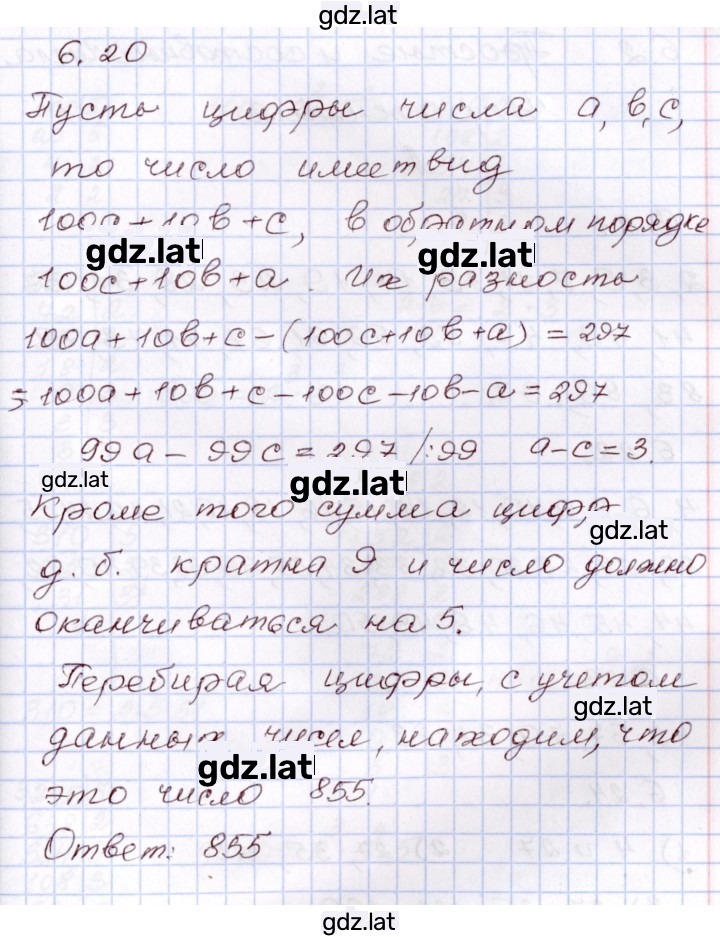 gdz.lat
6.20
Пусть цифры числа а, в, с,
то число имеет вид
100а+10в+с, в обратном порядке
gdz.lat gdz.lat
100с+10в+а. Их разность
100а+10в+с-(100с+10в+а) = 297
=100а+10в+с-100с-10в-а=297
99а - 99с=297 /:99 а-с=3.
gdz.lat gdz.lat
Кроме того сумма цифр
gdz.lat
д. б. кратна 9 и число должно
оканчиваться на 5.
Перебирая цифры, с учетом
gdz.lat
данных чисел, находим, что
gdz.lat
это число 855.
Ответ: 855
gdz.lat